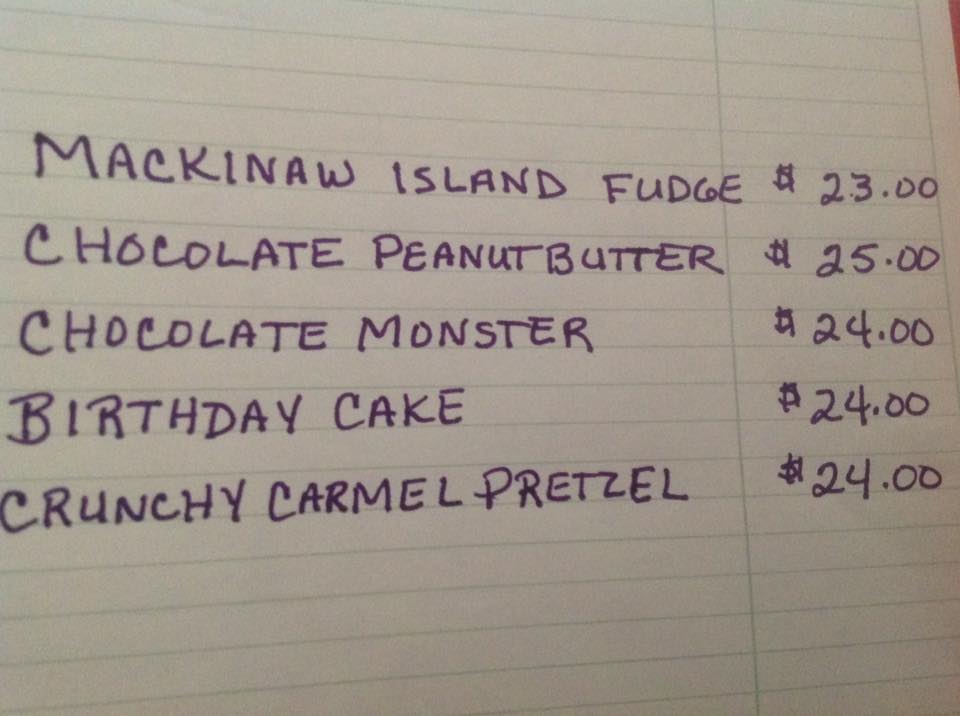 MACKINAW ISLAND FUDGE $ 23.00
CHOCOLATE PEANUTBUTTER $ 25.00
CHOCOLATE MONSTER $ 24.00
BIRTHDAY CAKE $ 24.00
CRUNCHY CARMEL PRETZEL $ 24.00